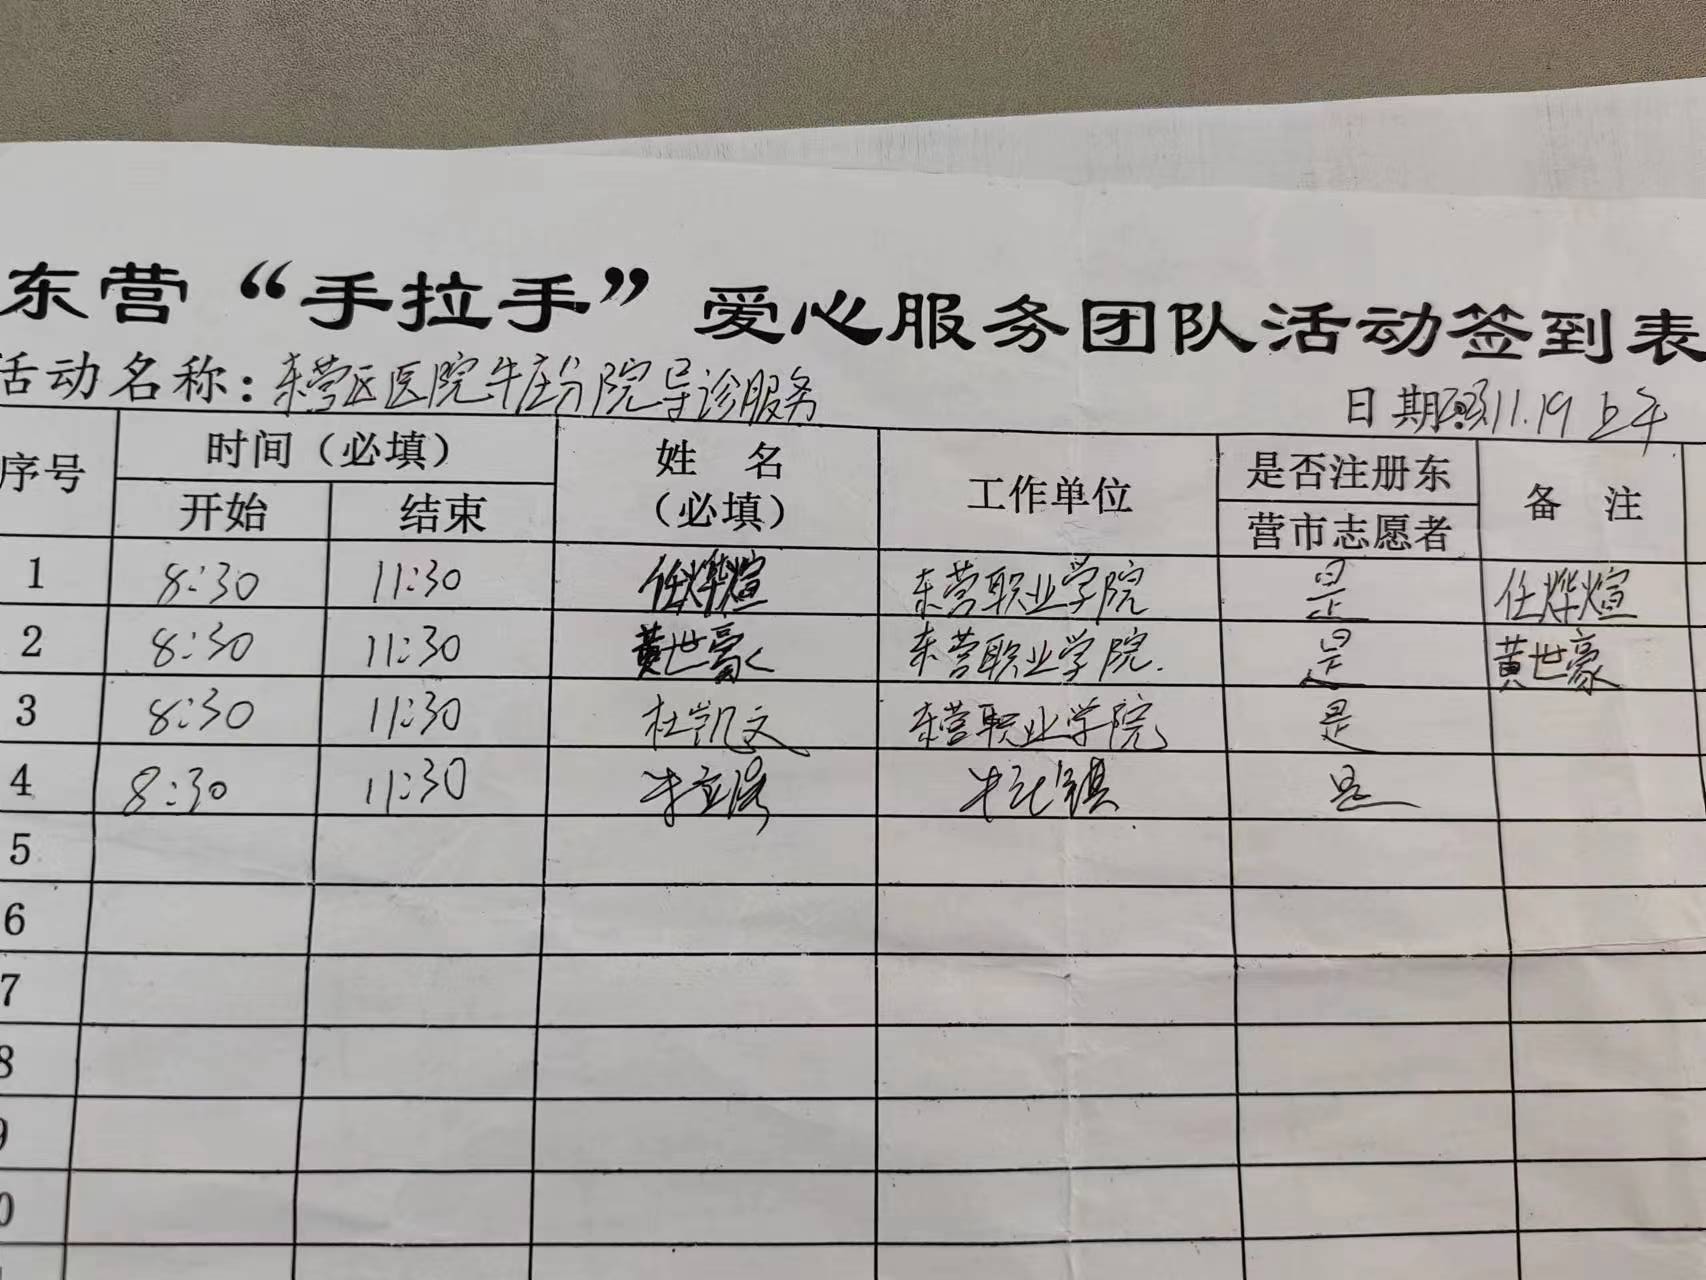 东营“手拉手”爱心服务团队活动签到表
活动名称：东营区医院牛庄分院导诊服务 日期 11.19 上午
序号 时间（必填） 姓名（必填） 工作单位 是否注册东营市志愿者 备注
开始 结束
1 8:30 11:30 任烨煊 东营职业学院 是 任烨煊
2 8:30 11:30 黄世豪 东营职业学院. 是 黄世豪
3 8:30 11:30 杜凯文 东营职业学院 是
4 8:30 11:30 牛庄镇 是
5
6
7
8
9
0